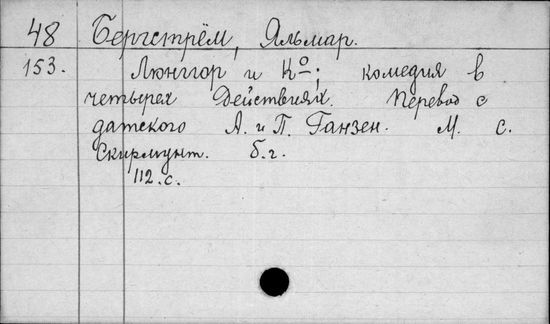 48 Бергстрём, Яльмар.
153. Люнггор и Кº; комедия в
четырех действиях. Перевод с
датского А. и П. Ганзен. М. С.
Скирмунт. б.г.
112.с.